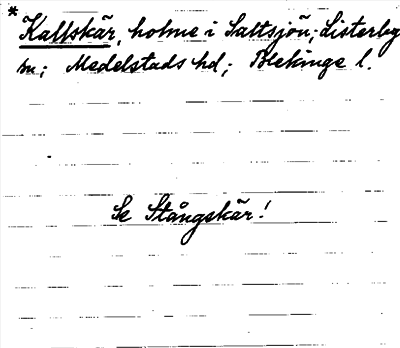 * Kallskär, holme i Saltsjön; Listerby
sn; Medelstads hd; Blekinge l.
Se Stångskär!